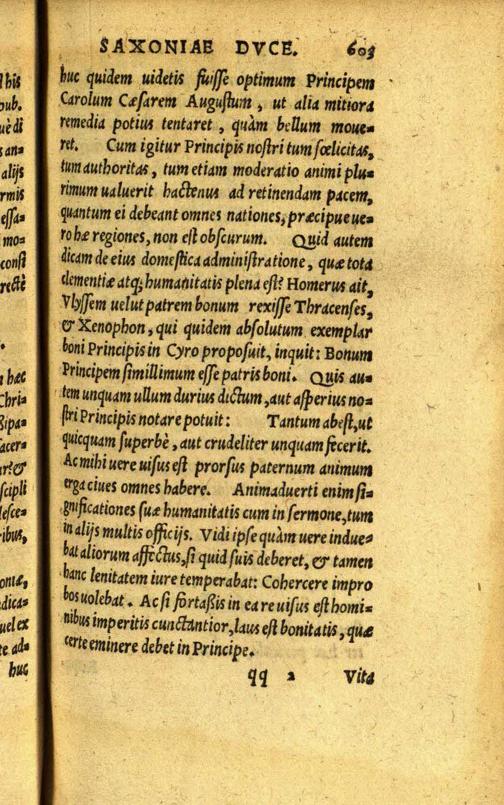 SAXONIAE DVCE. 603
huc quidem uidetis fuisse optimum Principem
Carolum Cæsarem Augustum, ut alia mitiora
remedia potius tentaret, quàm bellum moue=
ret. Cum igitur Principis nostri tum fœlicitas,
tum authoritas, tum etiam moderatio animi plu=
rimum ualuerit hactenus ad retinendam pacem,
quantum ei debeant omnes nationes, præcipue ue=
ro hæ regiones, non est obscurum. Quid autem
dicam de eius domestica administratione, quæ tota
clementiæ atq; humanitatis plena est? Homerus ait,
Vlyssem uelut patrem bonum rexisse Thracenses,
& Xenophon, qui quidem absolutum exemplar
boni Principis in Cyro proposuit, inquit: Bonum
Principem simillimum esse patris boni. Quis au=
tem unquam ullum durius dictum, aut asperius no=
stri Principis notare potuit: Tantum abest, ut
quicquam superbè, aut crudeliter unquam fecerit.
Ac mihi uere uisus est prorsus paternum animum
erga ciues omnes habere. Animaduerti enim si=
gnificationes suæ humanitatis cum in sermone, tum
in alijs multis officijs. Vidi ipse quàm uere indue=
bat aliorum affectus, si quid suis deberet, & tamen
hanc lenitatem iure temperabat: Cohercere impro
bos uolebat. Ac si fortaßis in ea re uisus est homi=
nibus imperitis cunctantior, laus est bonitatis, quæ
certe eminere debet in Principe.
qq 2 Vita
his
pub.
uè di
s an=
alijs
rmis
essa=
mo=
consi
rectè
n hæc
Chri=
ßipa=
facer=
ur? &
scipli
lesce=
ribus,
oniæ,
dica=
uel ex
te ad=
huc